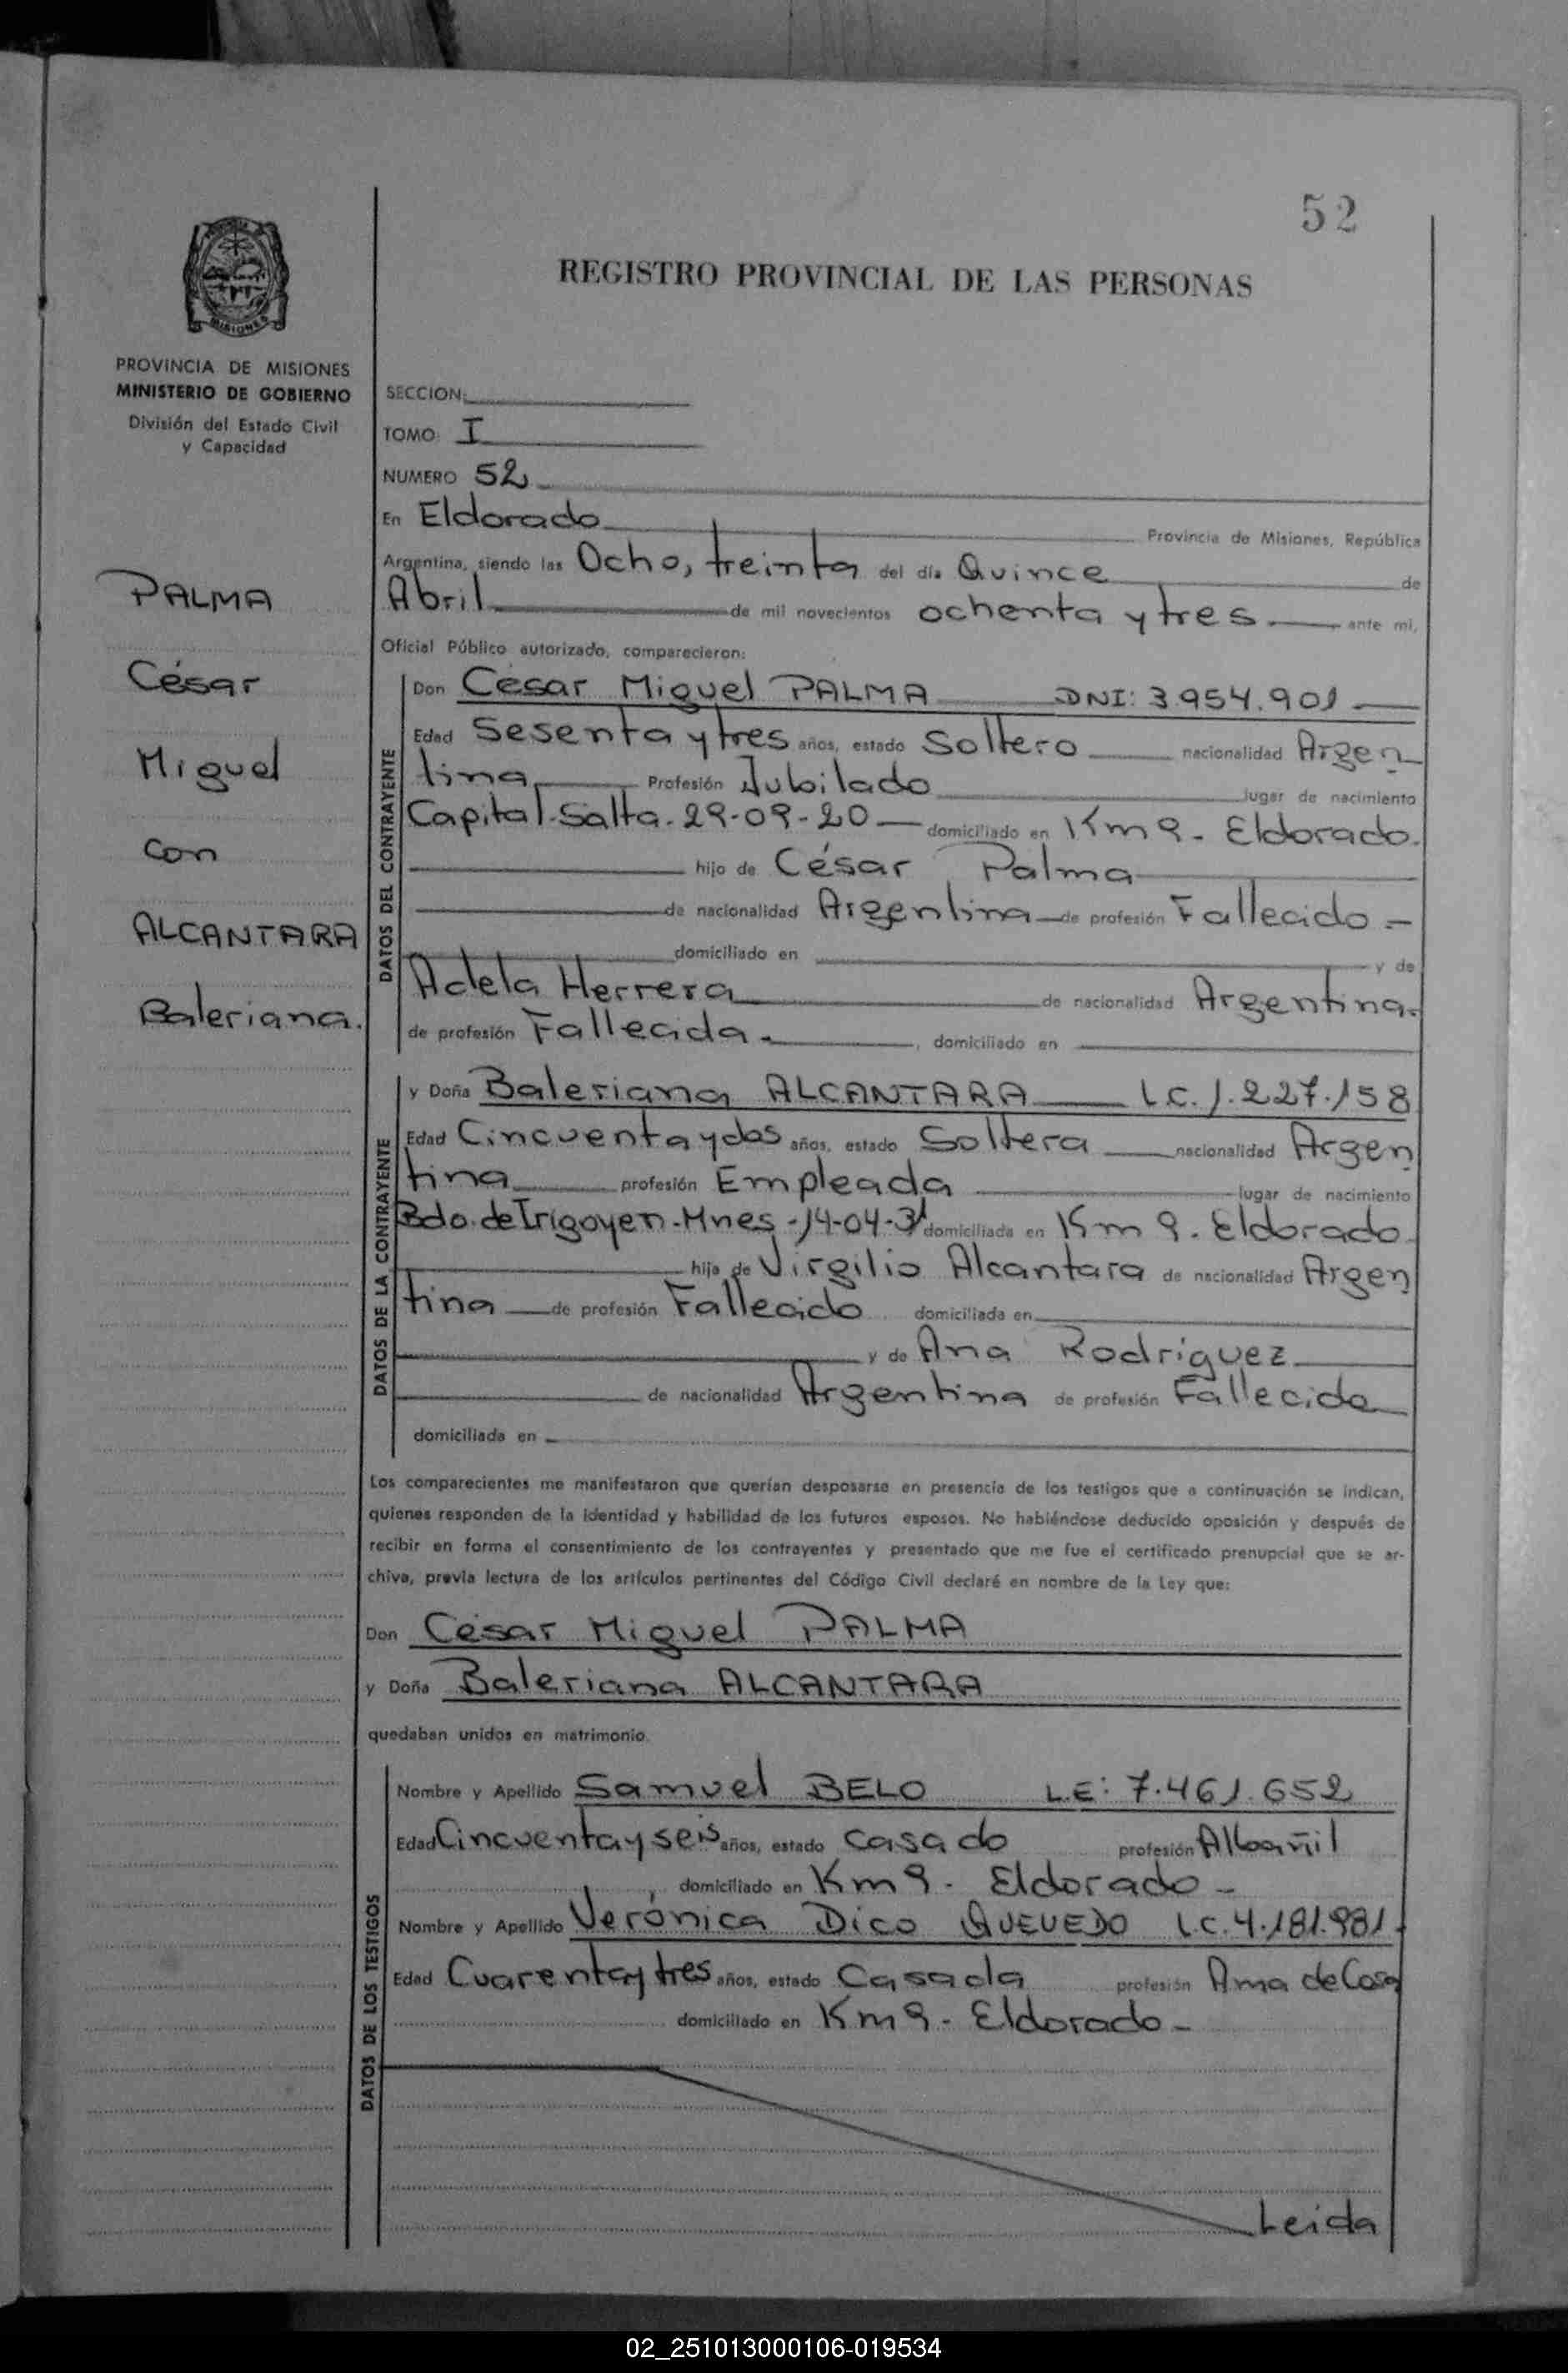 52
REGISTRO PROVINCIAL DE LAS PERSONAS
MISIONES
PROVINCIA DE MISIONES
MINISTERIO DE GOBIERNO
División del Estado Civil
y Capacidad
PALMA
César
Miguel
con
ALCANTARA
Baleriana.
SECCION:
TOMO: I
NUMERO 52
En Eldorado Provincia de Misiones, República
Argentina, siendo las Ocho, treinta del día Quince de
Abril de mil novecientos ochenta y tres ante mi,
Oficial Público autorizado, comparecieron:
DATOS DEL CONTRAYENTE
Don César Miguel PALMA DNI: 3.954.901
Edad Sesenta y tres años, estado Soltero nacionalidad Argen
tina Profesión Jubilado lugar de nacimiento
Capital-Salta-29-09-20 domiciliado en Km 9- Eldorado.
hijo de César Palma
de nacionalidad Argentina de profesión Fallecido -
domiciliado en y de
Adela Herrera de nacionalidad Argentina.
de profesión Fallecida , domiciliado en
DATOS DE LA CONTRAYENTE
y Doña Baleriana ALCANTARA L.C. 1.227.158
Edad Cincuenta y dos años, estado Soltera nacionalidad Argen
tina profesión Empleada lugar de nacimiento
Bdo. de Irigoyen-Mnes-14-04-31 domiciliada en Km 9. Eldorado.
hija de Virgilio Alcantara de nacionalidad Argen
tina de profesión Fallecido domiciliada en
y de Ana Rodriguez
de nacionalidad Argentina de profesión Fallecida
domiciliada en
Los comparecientes me manifestaron que querían desposarse en presencia de los testigos que a continuación se indican,
quienes responden de la identidad y habilidad de los futuros esposos. No habiéndose deducido oposición y después de
recibir en forma el consentimiento de los contrayentes y presentado que me fue el certificado prenupcial que se ar-
chiva, previa lectura de los artículos pertinentes del Código Civil declaré en nombre de la Ley que:
Don César Miguel PALMA
y Doña Baleriana ALCANTARA
quedaban unidos en matrimonio.
DATOS DE LOS TESTIGOS
Nombre y Apellido Samuel BELO L.E: 7.461.652
Edad Cincuenta y seis años, estado Casado profesión Albañil
, domiciliado en Km 9- Eldorado -
Nombre y Apellido Verónica Dico QUEVEDO L.C. 4.181.981.
Edad Cuarenta y tres años, estado Casada profesión Ama de Casa
domiciliado en Km 9- Eldorado -
Leida
02_251013000106-019534